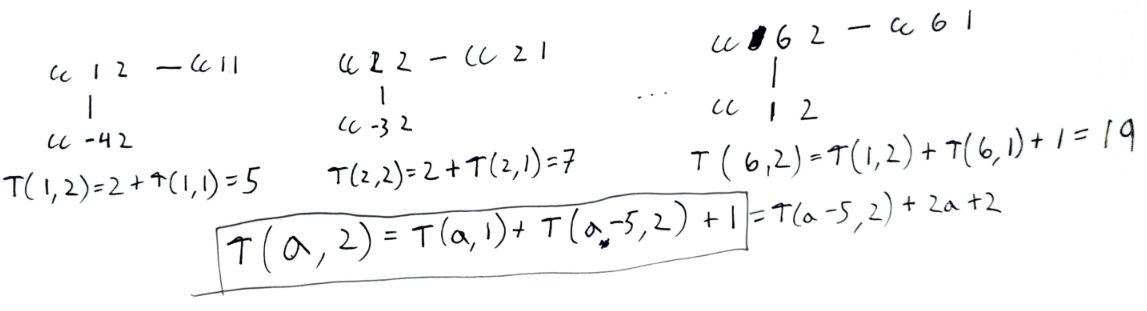 cc 1 2 — cc 1 1
cc -4 2
T(1,2)=2+T(1,1)=5
cc 2 2 — cc 2 1
cc -3 2
T(2,2)=2+T(2,1)=7
...
cc 6 2 — cc 6 1
cc 1 2
T(6,2)=T(1,2)+T(6,1)+1=19
T(a,2)=T(a,1)+T(a-5,2)+1=T(a-5,2)+2a+2